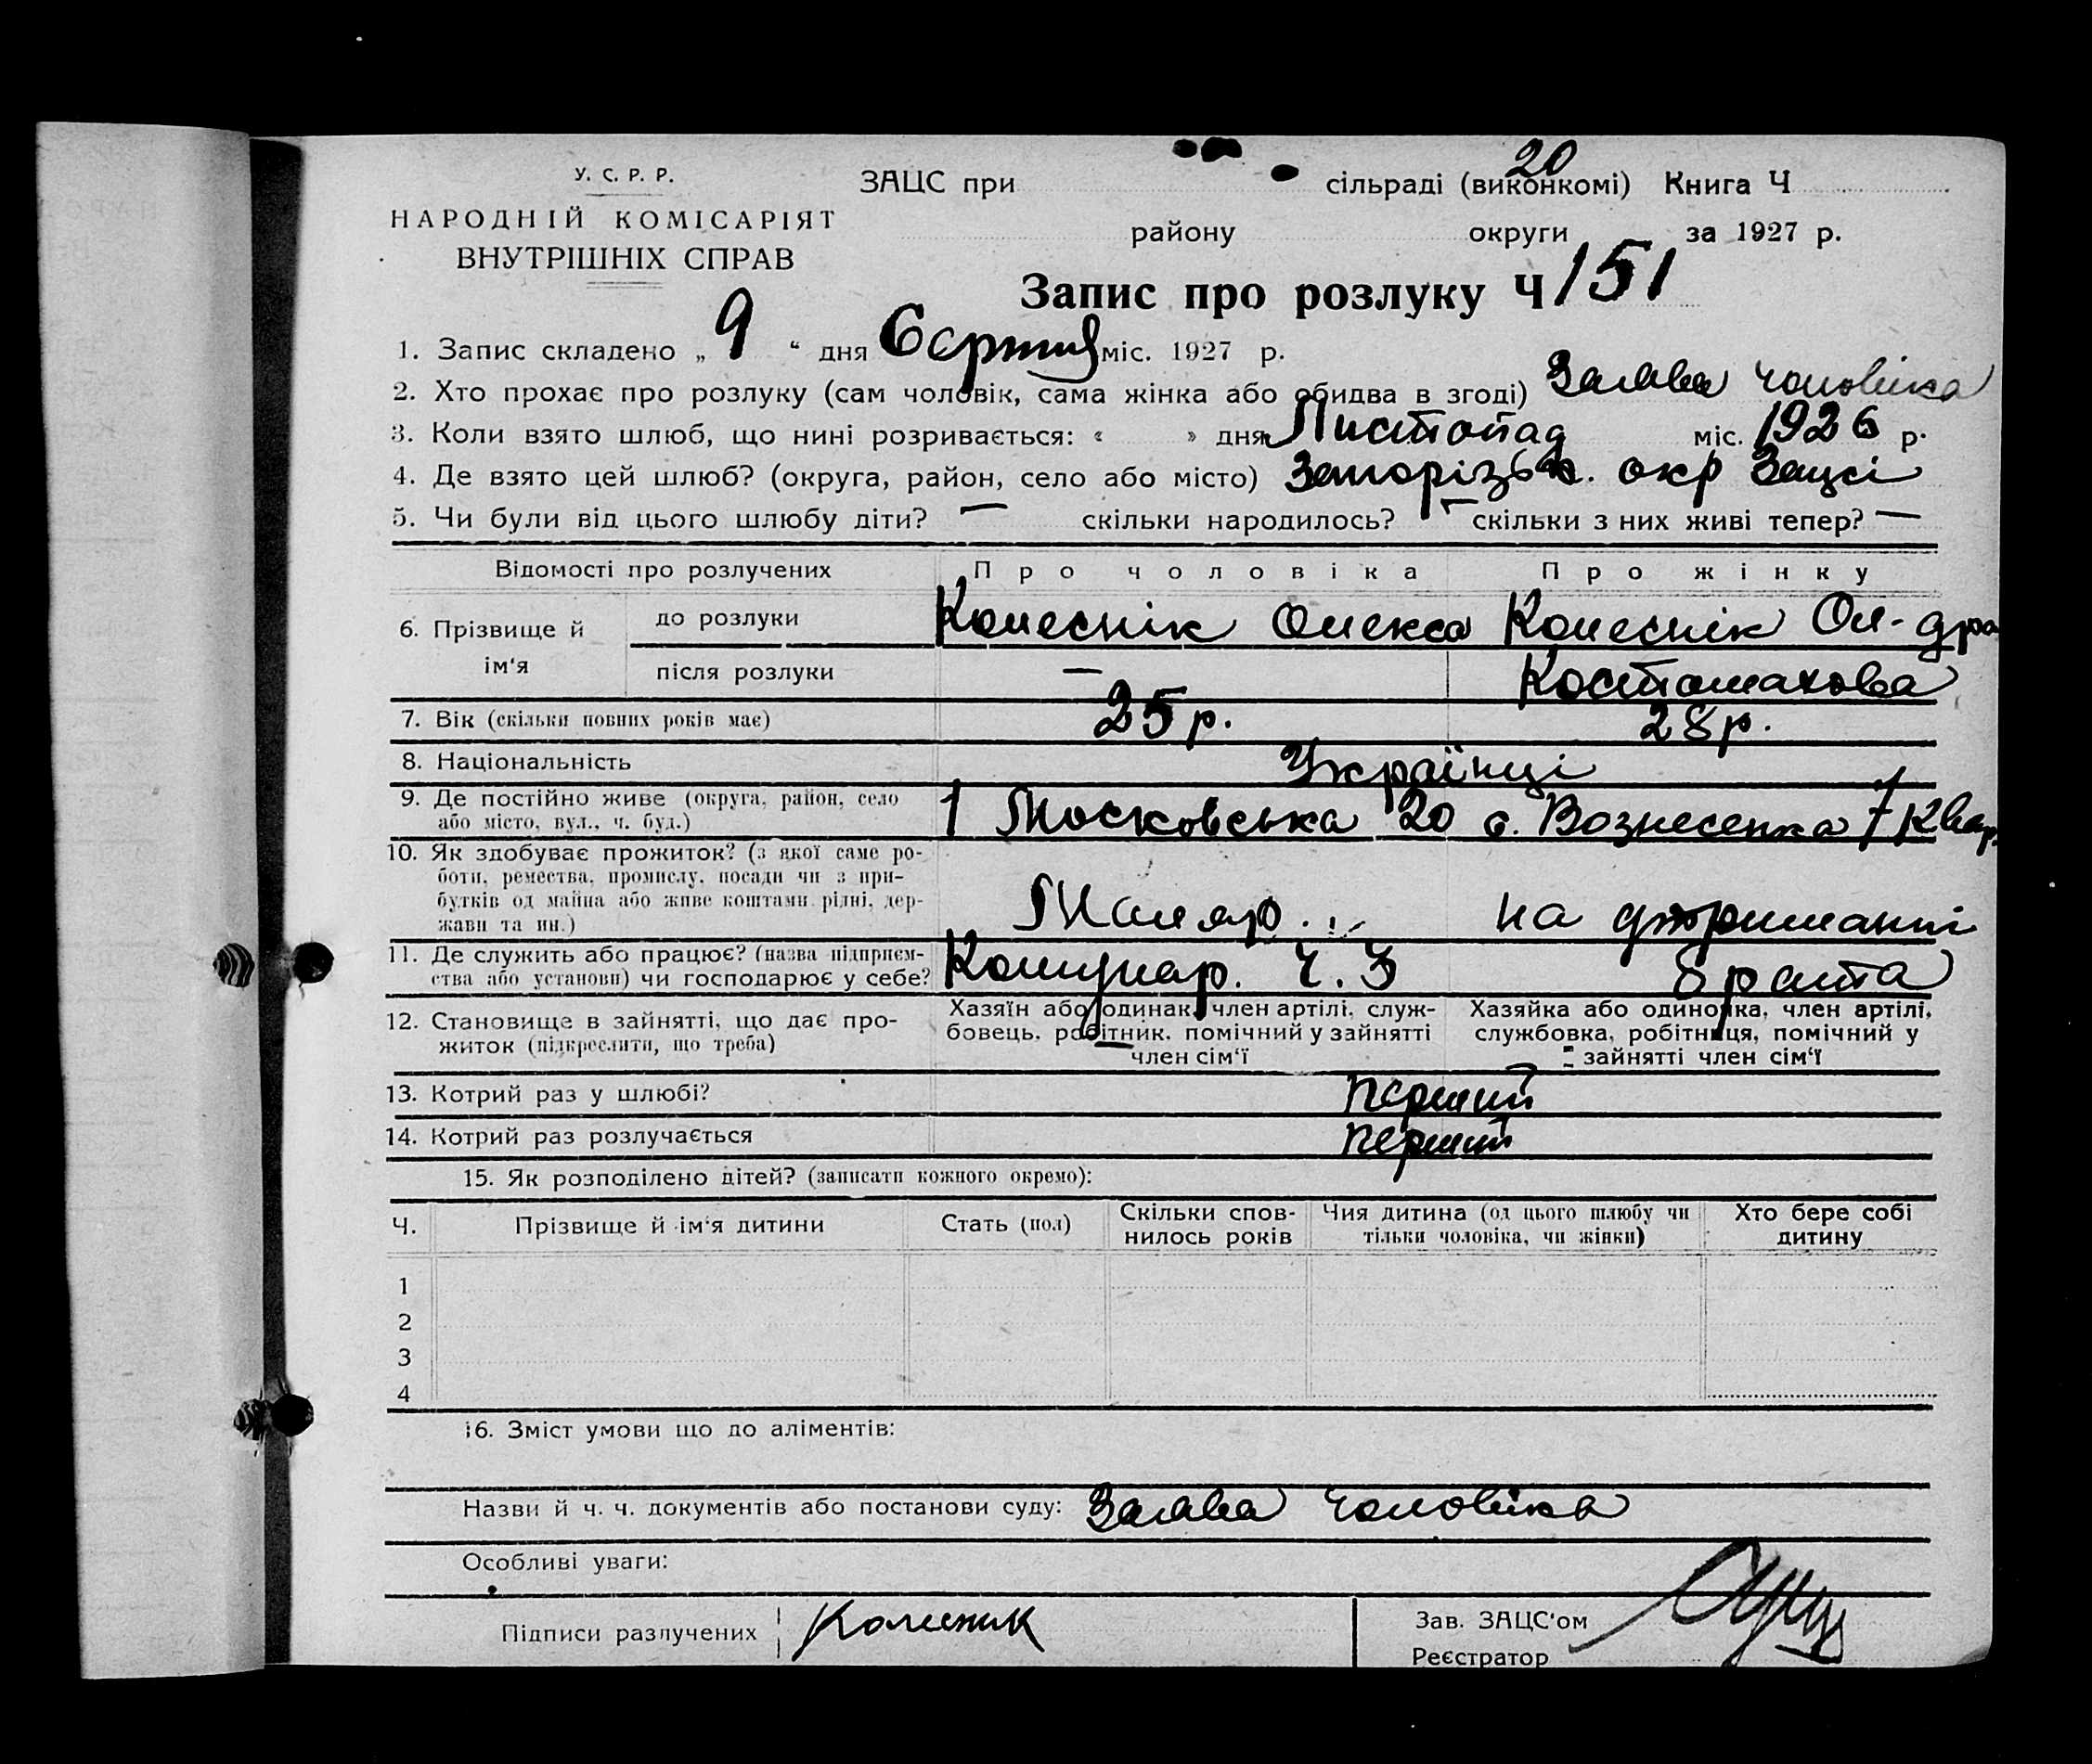 У. С. Р. Р.
НАРОДНІЙ КОМІСАРІЯТ
ВНУТРІШНІХ СПРАВ
ЗАЦС при сільраді (виконкомі) 20 Книга Ч
району округи за 1927 р.
Запис про розлуку Ч 151
1. Запис складено „ 9 “ дня Серпня міс. 1927 р.
2. Хто прохає про розлуку (сам чоловік, сама жінка або обидва в згоді) Заява чоловіка
3. Коли взято шлюб, що нині розривається: « » дня Листопад міс. 1926 р.
4. Де взято цей шлюб? (округа, район, село або місто) Запорізьк. окр Зацсі
5. Чи були від цього шлюбу діти? — скільки народилось? — скільки з них живі тепер? —
Відомості про розлучених Про чоловіка Про жінку
6. Прізвище й ім‘я
до розлуки Колеснік Олекса Колеснік Ол-дра
після розлуки — Костомахова
7. Вік (скільки повних років має) 25 р. 28 р.
8. Національність Українці
9. Де постійно живе (округа, район, село
або місто, вул., ч. буд.) 1 Московська 20 с. Вознесенка 7 квар.
10. Як здобуває прожиток? (з якої саме ро-
боти, ремества, промислу, посади чи з при-
бутків од майна або живе коштами рідні, дер-
жави та ин.) Маляр. на утриманні
11. Де служить або працює? (назва підприєм-
ства або установи) чи господарює у себе? Комунар. Ч. 3 брата
12. Становище в зайнятті, що дає про-
житок (підкреслити, що треба)
Хазяїн або одинак, член артілі, служ-
бовець, робітник, помічний у зайнятті
член сім‘ї
Хазяйка або одиночка, член артілі,
службовка, робітниця, помічний у
зайнятті член сім‘ї
13. Котрий раз у шлюбі? перший
14. Котрий раз розлучається перший
15. Як розподілено дітей? (записати кожного окремо):
Ч. Прізвище й ім‘я дитини Стать (пол) Скільки спов-
нилось років Чия дитина (од цього шлюбу чи
тільки чоловіка, чи жінки) Хто бере собі
дитину
1
2
3
4
16. Зміст умови що до аліментів:
Назви й ч. ч. документів або постанови суду: Заява чоловіка
Особливі уваги:
Підписи разлучених Колесник
Зав. ЗАЦС‘ом
Реєстратор